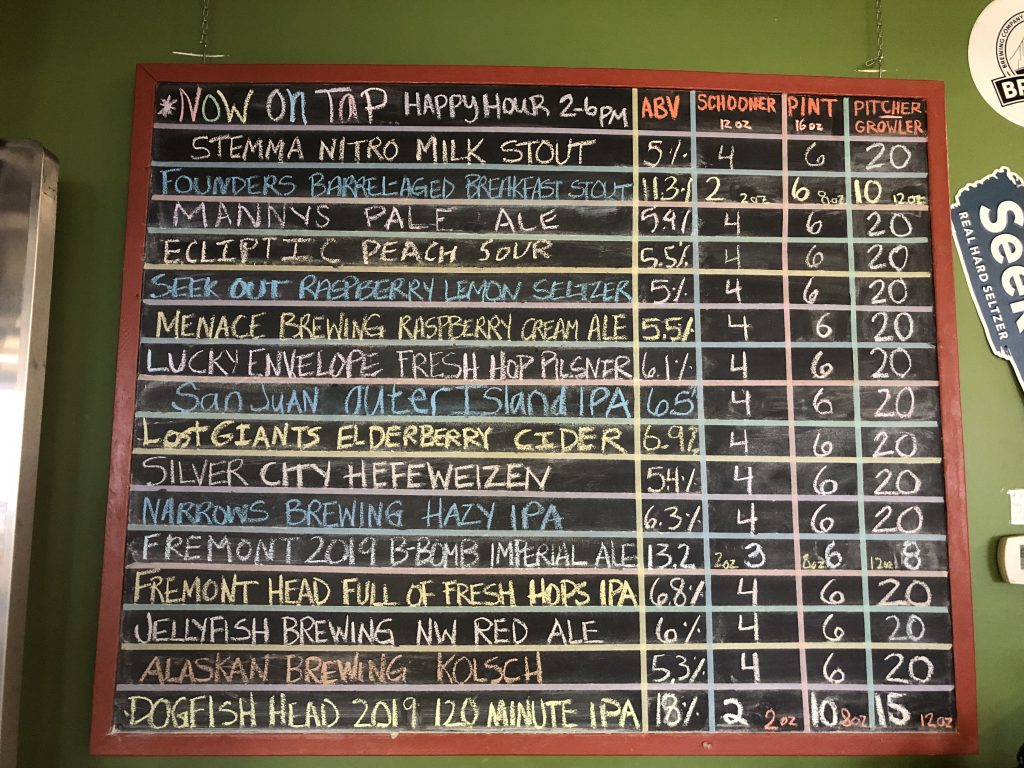 *NOW ON TAP HAPPY HOUR 2-6PM ABV SCHOONER 12 OZ PINT 16 OZ PITCHER GROWLER
STEMMA NITRO MILK STOUT 5% 4 6 20
FOUNDERS BARREL-AGED BREAKFAST STOUT 11.3% 2 2oz 6 8oz 10 12oz
MANNYS PALE ALE 5.4% 4 6 20
ECLIPTIC PEACH SOUR 5.5% 4 6 20
SEEK OUT RASPBERRY LEMON SELTZER 5% 4 6 20
MENACE BREWING RASPBERRY CREAM ALE 5.5% 4 6 20
LUCKY ENVELOPE FRESH HOP PILSNER 6.1% 4 6 20
San Juan Outer Island IPA 6.5% 4 6 20
LOST GIANTS ELDERBERRY CIDER 6.9% 4 6 20
SILVER CITY HEFEWEIZEN 5.4% 4 6 20
NARROWS BREWING HAZY IPA 6.3% 4 6 20
FREMONT 2019 B-BOMB IMPERIAL ALE 13.2 2oz 3 8oz 6 12oz 8
FREMONT HEAD FULL OF FRESH HOPS IPA 6.8% 4 6 20
JELLYFISH BREWING NW RED ALE 6% 4 6 20
ALASKAN BREWING KOLSCH 5.3% 4 6 20
DOGFISH HEAD 2019 120 MINUTE IPA 18% 2 2oz 10 8oz 15 12oz
BREWING COMPANY
REAL HARD SELTZER